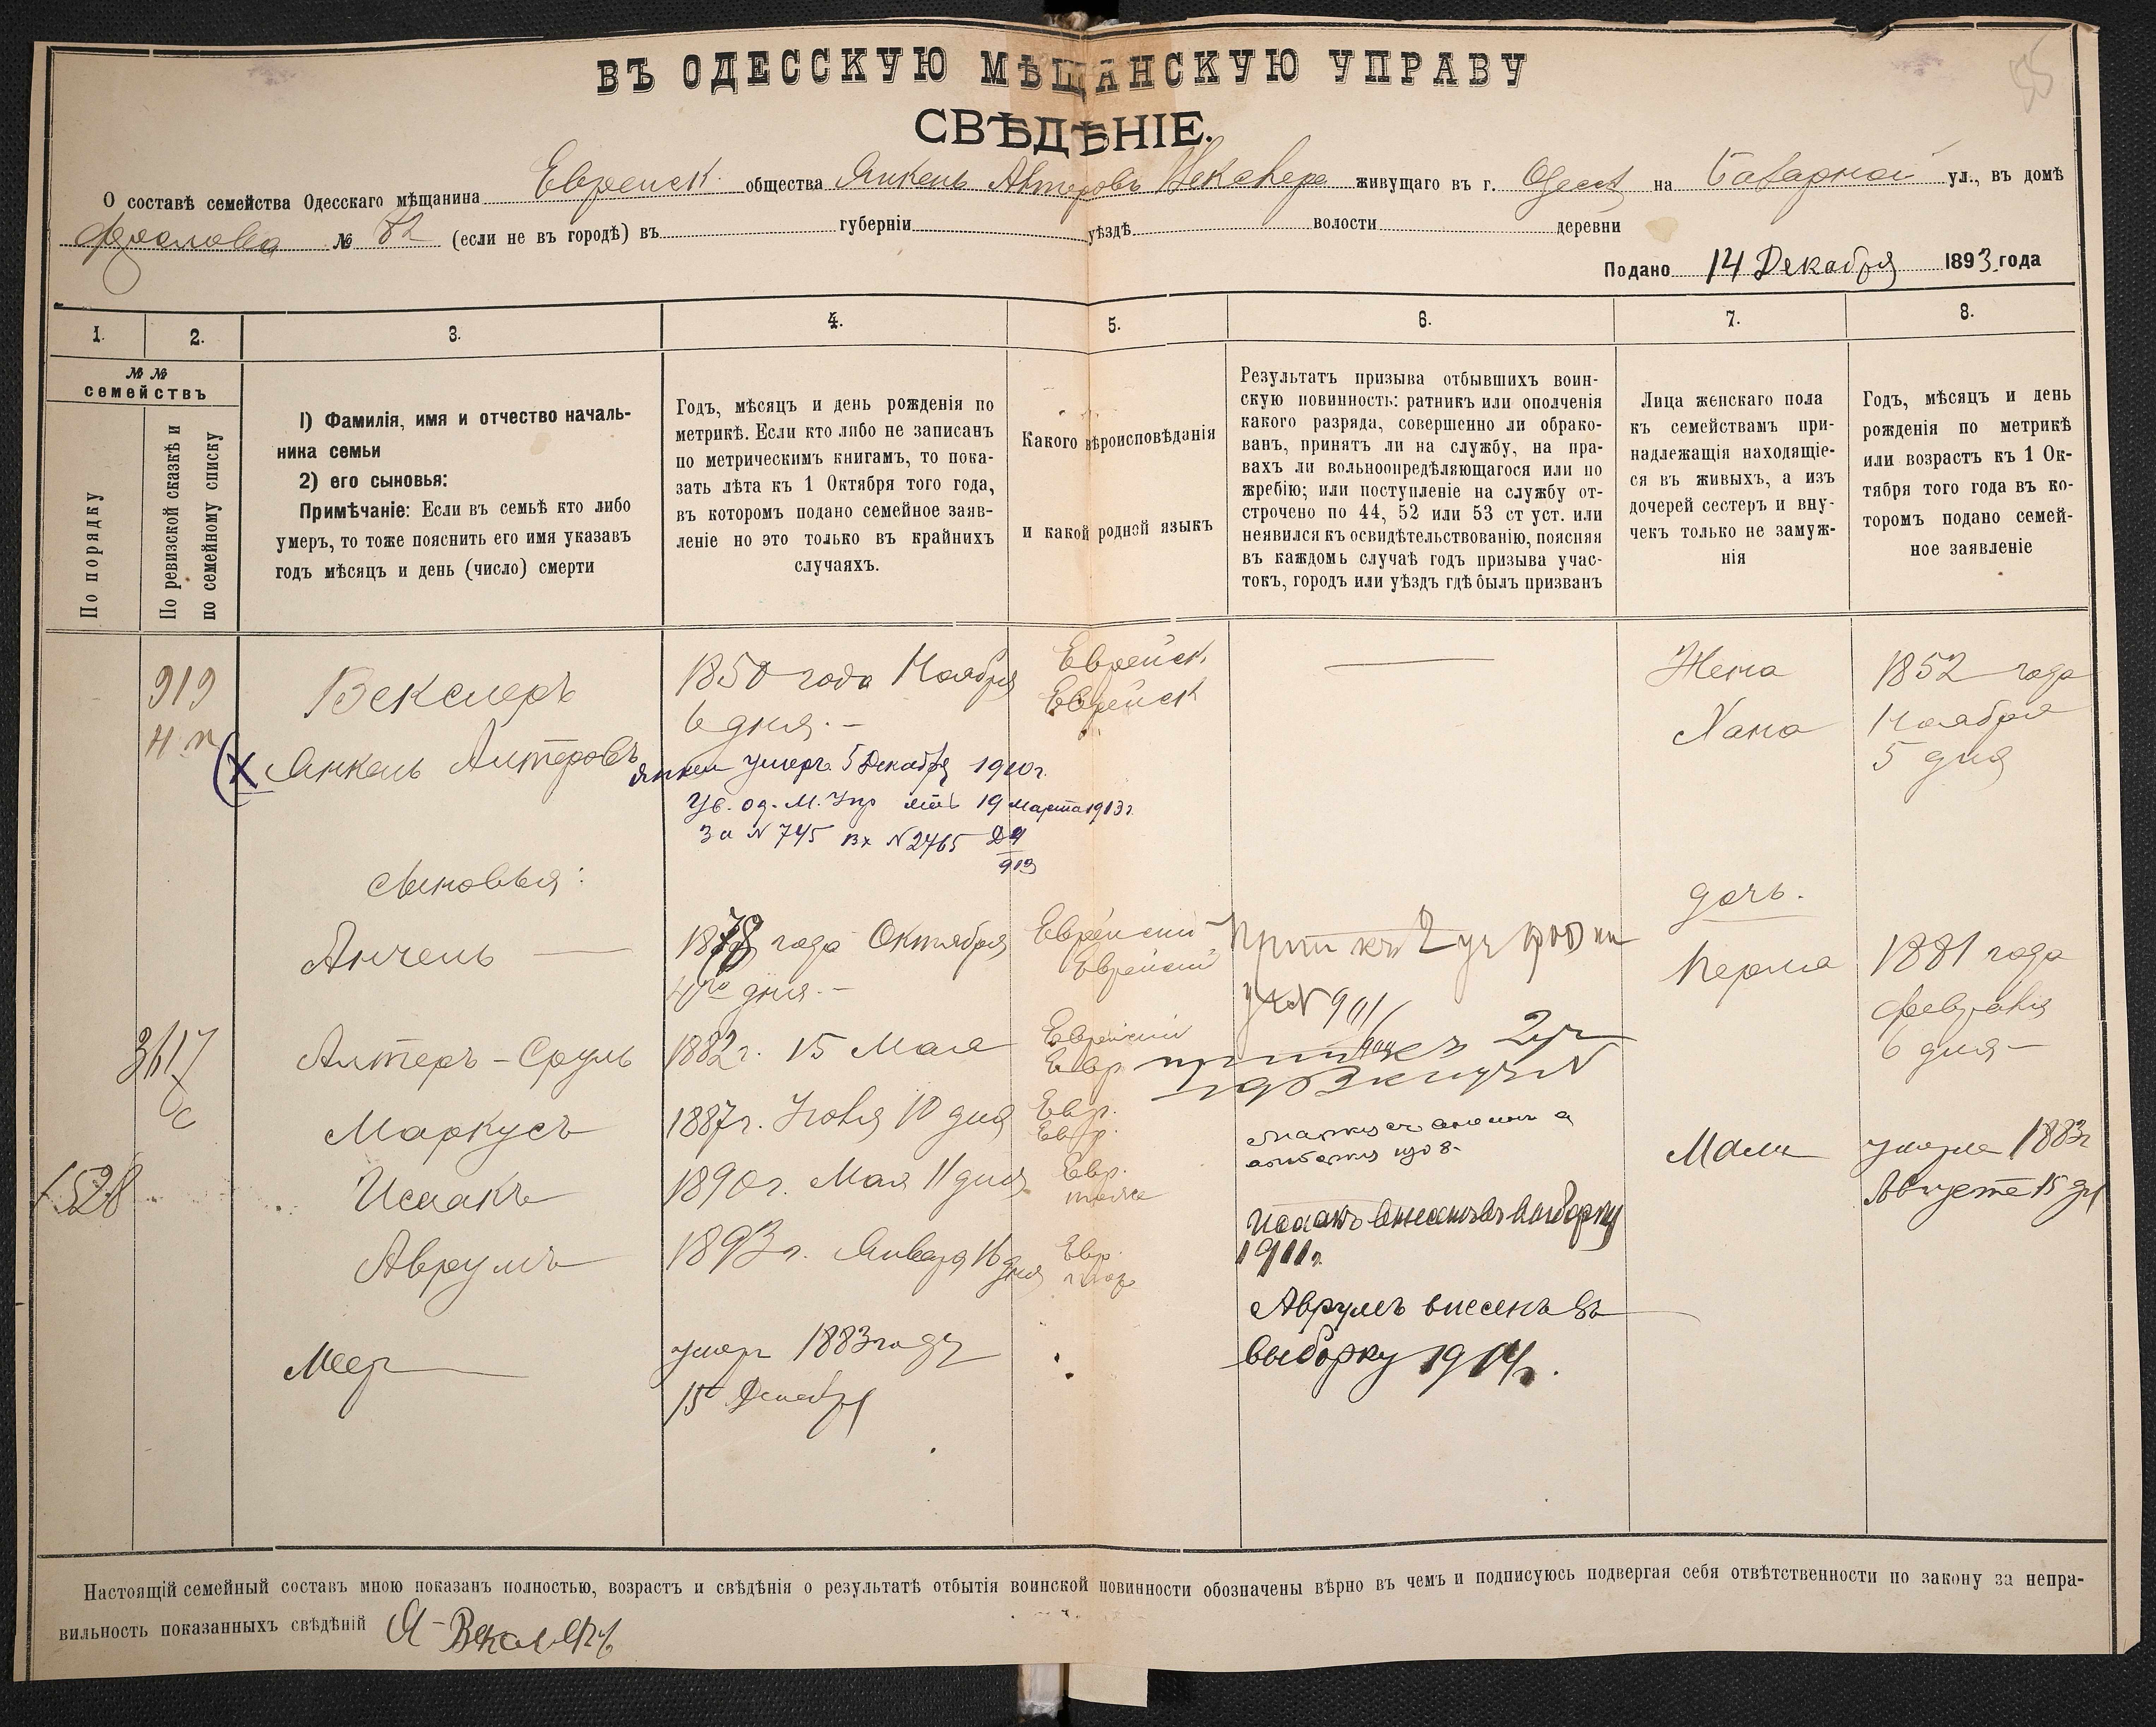 ВЪ ОДЕССКУЮ МѢЩАНСКУЮ УПРАВУ
СВѢДѢНІЕ.
О составѣ семейства Одесскаго мѣщанина Еврейск. общества Янкель Алтеровъ Векслера живущаго въ г. Одесѣ на Базарной ул., въ домѣ
№ 82 (если не въ городѣ) въ губерніи уѣздѣ волости деревни
Подано 14 Декабря 1893 года
1.
2.
3.
4.
5.
6.
7.
8.
№ №
семействъ
По порядку
По ревизской сказкѣ и
по семейному списку
1) Фамилія, имя и отчество началь-
ника семьи
2) его сыновья:
Примѣчаніе: Если въ семьѣ кто либо
умеръ, то тоже пояснить его имя указавъ
годъ мѣсяцъ и день (число) смерти
Годъ, мѣсяцъ и день рожденія по
метрикѣ. Если кто либо не записанъ
по метрическимъ книгамъ, то пока-
зать лѣта къ 1 Октября того года,
въ которомъ подано семейное заяв-
леніе но это только въ крайнихъ
случаяхъ.
Какого вѣроисповѣданія
и какой родной языкъ
Результатъ призыва отбывшихъ воин-
скую повинность: ратникъ или ополченія
какого разряда, совершенно ли обрако-
ванъ, принятъ ли на службу, на пра-
вахъ ли вольноопредѣляющагося или по
жребію; или поступленіе на службу от-
строчено по 44, 52 или 53 ст уст. или
неявился къ освидѣтельствованію, поясняя
въ каждомъ случаѣ годъ призыва учас-
токъ, городъ или уѣздъ гдѣ былъ призванъ
Лица женскаго пола
къ семействамъ при-
надлежащія находящіе-
ся въ живыхъ, а изъ
дочерей сестеръ и вну-
чекъ только не замуж-
нія
Годъ, мѣсяцъ и день
рожденія по метрикѣ
или возрастъ къ 1 Ок-
тября того года въ ко-
торомъ подано семей-
ное заявленіе
919
Векслеръ
Янкель Алтеровъ
1850 года Ноября
6 дня. –
Еврейск.
Еврейск
Жена
Хана
1852 года
Ноября
5 дня
Янкель умеръ 5 Декабря 1910г.
Ув. од. М. Упр 19 Марта 1913 г.
За N 745 Вх N 2465
Сыновья:
дочь.
Анчель
1878 года Октября
дня. –
Еврейский
Еврейский
къ 2 уч
901
Перля
1881 года
Февраля
6 дня –
3617
Алтеръ – Сруль
1882 г. 15 Мая
Еврейский
Евр
2 уч
Маркусъ
1887 г. Іюня 10 дня
Евр.
Евр.
Маркусъ
Маля
умерла 1883 г
Августа 15 дня
1528
Исаакъ
1890 г. Мая 11 дня
Евр.
тоже
Исаакъ внесенъ въ выборку
1911 г.
Аврумъ
1893 г. Января 16 дня
Евр.
тоже
Аврумъ внесенъ въ
выборку 1914 г.
Меер
умер 1883 году
15 Декабря
Настоящій семейный составъ мною показанъ полностью, возрастъ и свѣдѣнія о результатѣ отбытія воинской повинности обозначены вѣрно въ чемъ и подписуюсь подвергая себя отвѣтственности по закону за непра-
вильность показанныхъ свѣдѣній Я – Векслеръ